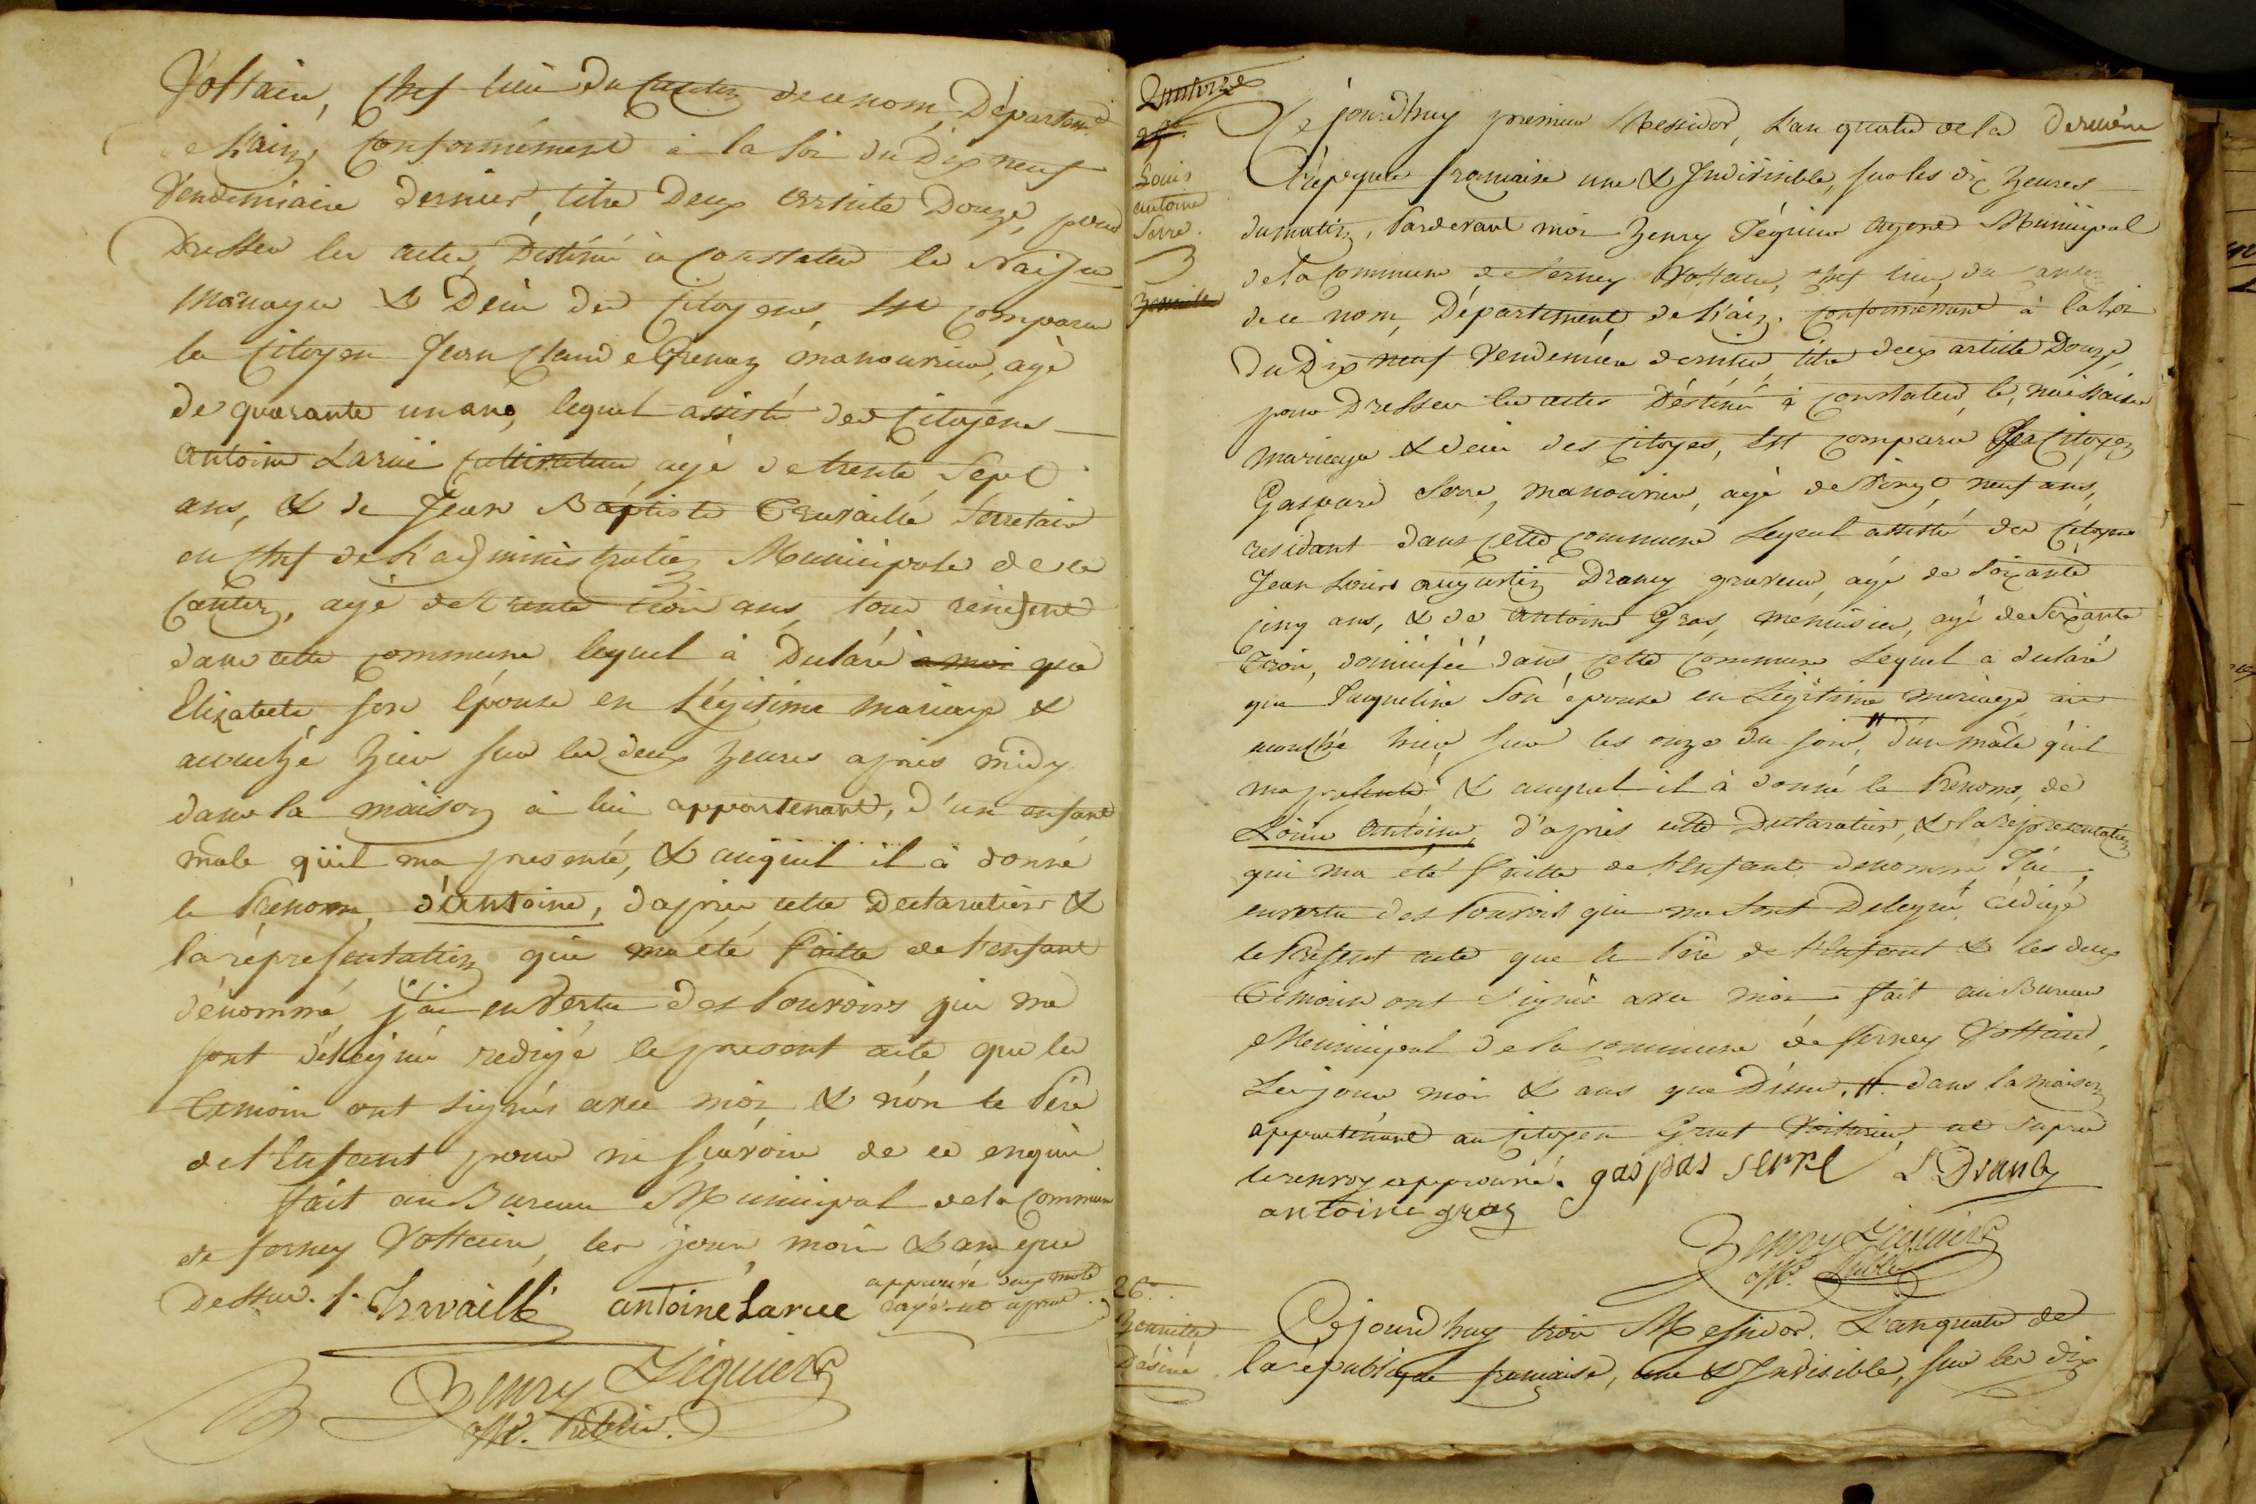 Voltaire, Chef lieu du Canton de ce nom, Départemt
de L'ain, Conformément à la Loi du Dix neuf
Vendemiaire dernier, titre Deux article Douze, pour
Dresser les actes Destinés à Constater les Naiſse
Mariages & Décès des Citoyens, Est comparu
le Citoyen Jean Claude Grenaz manouvrier, agé
de quarante un ans, lequel assisté des Citoyens
antoine Larué Cultivateur agé de trente Sept
ans, & de Jean Baptiste Travaillé Sécretaire
en Chef de L'administration Municipale de ce
Canton, agé de trente trois ans, tous residens
dans cette commune lequel à Déclaré à moi que
Elizabete son Epouse en Légitime Mariage &
accouché hier sur les deux heures après midy
dans la maison à lui appartenant, d'un enfant
mâle qu'il ma presenté, & auquel il à donné
le Prénom, d'antoine, d'après cette Declaration &
la répresentation qui ma été faitte de l'enfant
dénommé j'ai en Vertu des Pouvoirs qui me
sont délégués redigé le present acte que les
Temoins ont signés avec moi & non le Père
de l'Enfant pour ne sçavoir de ce enquis
fait au Bureau Municipal de la Commune
de ferney Voltaire, les jour mois & an que
Dessus. J. Travaillé antoine Larue approuvé deux mots
rayés
Henry Féguiere
off. Public.
Quatorze
Louis
antoine
Serre.
Ce jourd'huy premier Messidor, L'an quatre de la dernière
République française une & Indivisible, sur les dix heures
du matin, Pardevant moi Henry Féguier agent Municipal
de la Commune de ferney Voltaire, chef lieu du Canton
de ce nom, Département de L'ain. conformément à la Loi
du Dix neuf Vendemiere dernier, titre deux article Douze,
pour Dresser les actes Déstinés à constater les naissances
mariages & décès des Citoyens, Est comparu Le Citoyen
Gaspard Serre, manouvrier, agé de Vingt neuf ans,
residant dans cette commune Lequel assisté des Citoyens
Jean Louis augustin Drancy graveur, agé de Soixante
cinq ans, & de antoine Gras, menuisier, agé de Soixante
Trois, domicilié dans cette commune Lequel a déclaré
que Jaqueline Son épouse en Légitime mariage ait
accouché hier sur les onze du soir, d'un mâle qu'il
ma presenté & auquel il à donné le Prénoms, de
Louis Antoine, d'après cette Declaration, & la représentation
qui ma été faitte de l'Enfant denommé J'ai
en vertu des Pouvoirs qui me sont Delegués, rédigé
le Present acte que le Père de l'Enfant & les deux
Temoins ont signés avec moi fait au Bureau
Municipal de la commune de ferney Voltaire,
Les jour mois & ans que Dessus. // dans la maison
appartenant au Citoyen ut Supra
le renvoy approuvé. gaspas serre L Drancy
antoine gras
Henry Féguiere
off. Public
26.
Ce jourd'huy trois Messidor. L'an quatre de
la république française, une & Indivisible, sur les dix